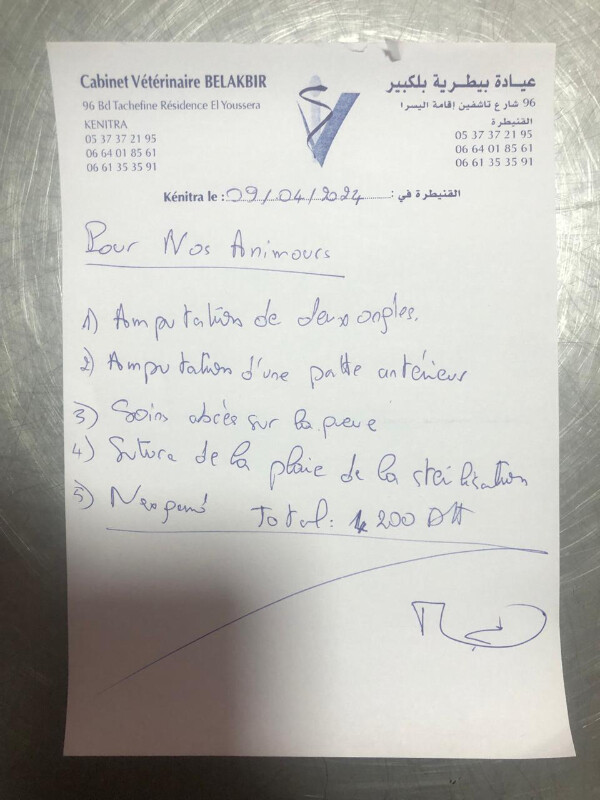 Cabinet Vétérinaire BELAKBIR
96 Bd Tachefine Résidence El Youssera
KENITRA
05 37 37 21 95
06 64 01 85 61
06 61 35 35 91
عيادة بيطرية بلكبير
96 شارع تاشفين إقامة اليسرا
القنيطرة
05 37 37 21 95
06 64 01 85 61
06 61 35 35 91
Kénitra le : 09/04/2024 القنيطرة في :
Pour Nos Animours
1) Amputation de deux ongles.
2) Amputation d'une patte antérieur
3) Soins abcès sur la
4) Suture de la plaie de la stérilisation
5)
Total: 200 DH